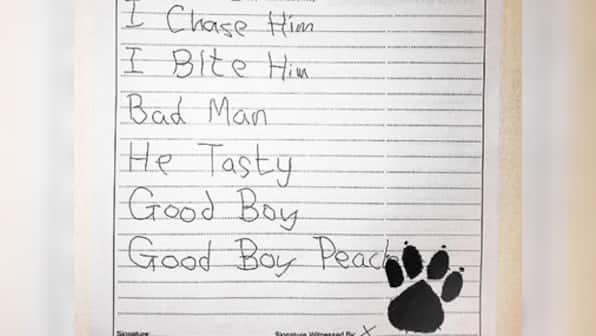 I Chase Him
I BIte Him
Bad Man
He Tasty
Good Boy
Good Boy Peach
Signature:
Signature Witnessed By: X